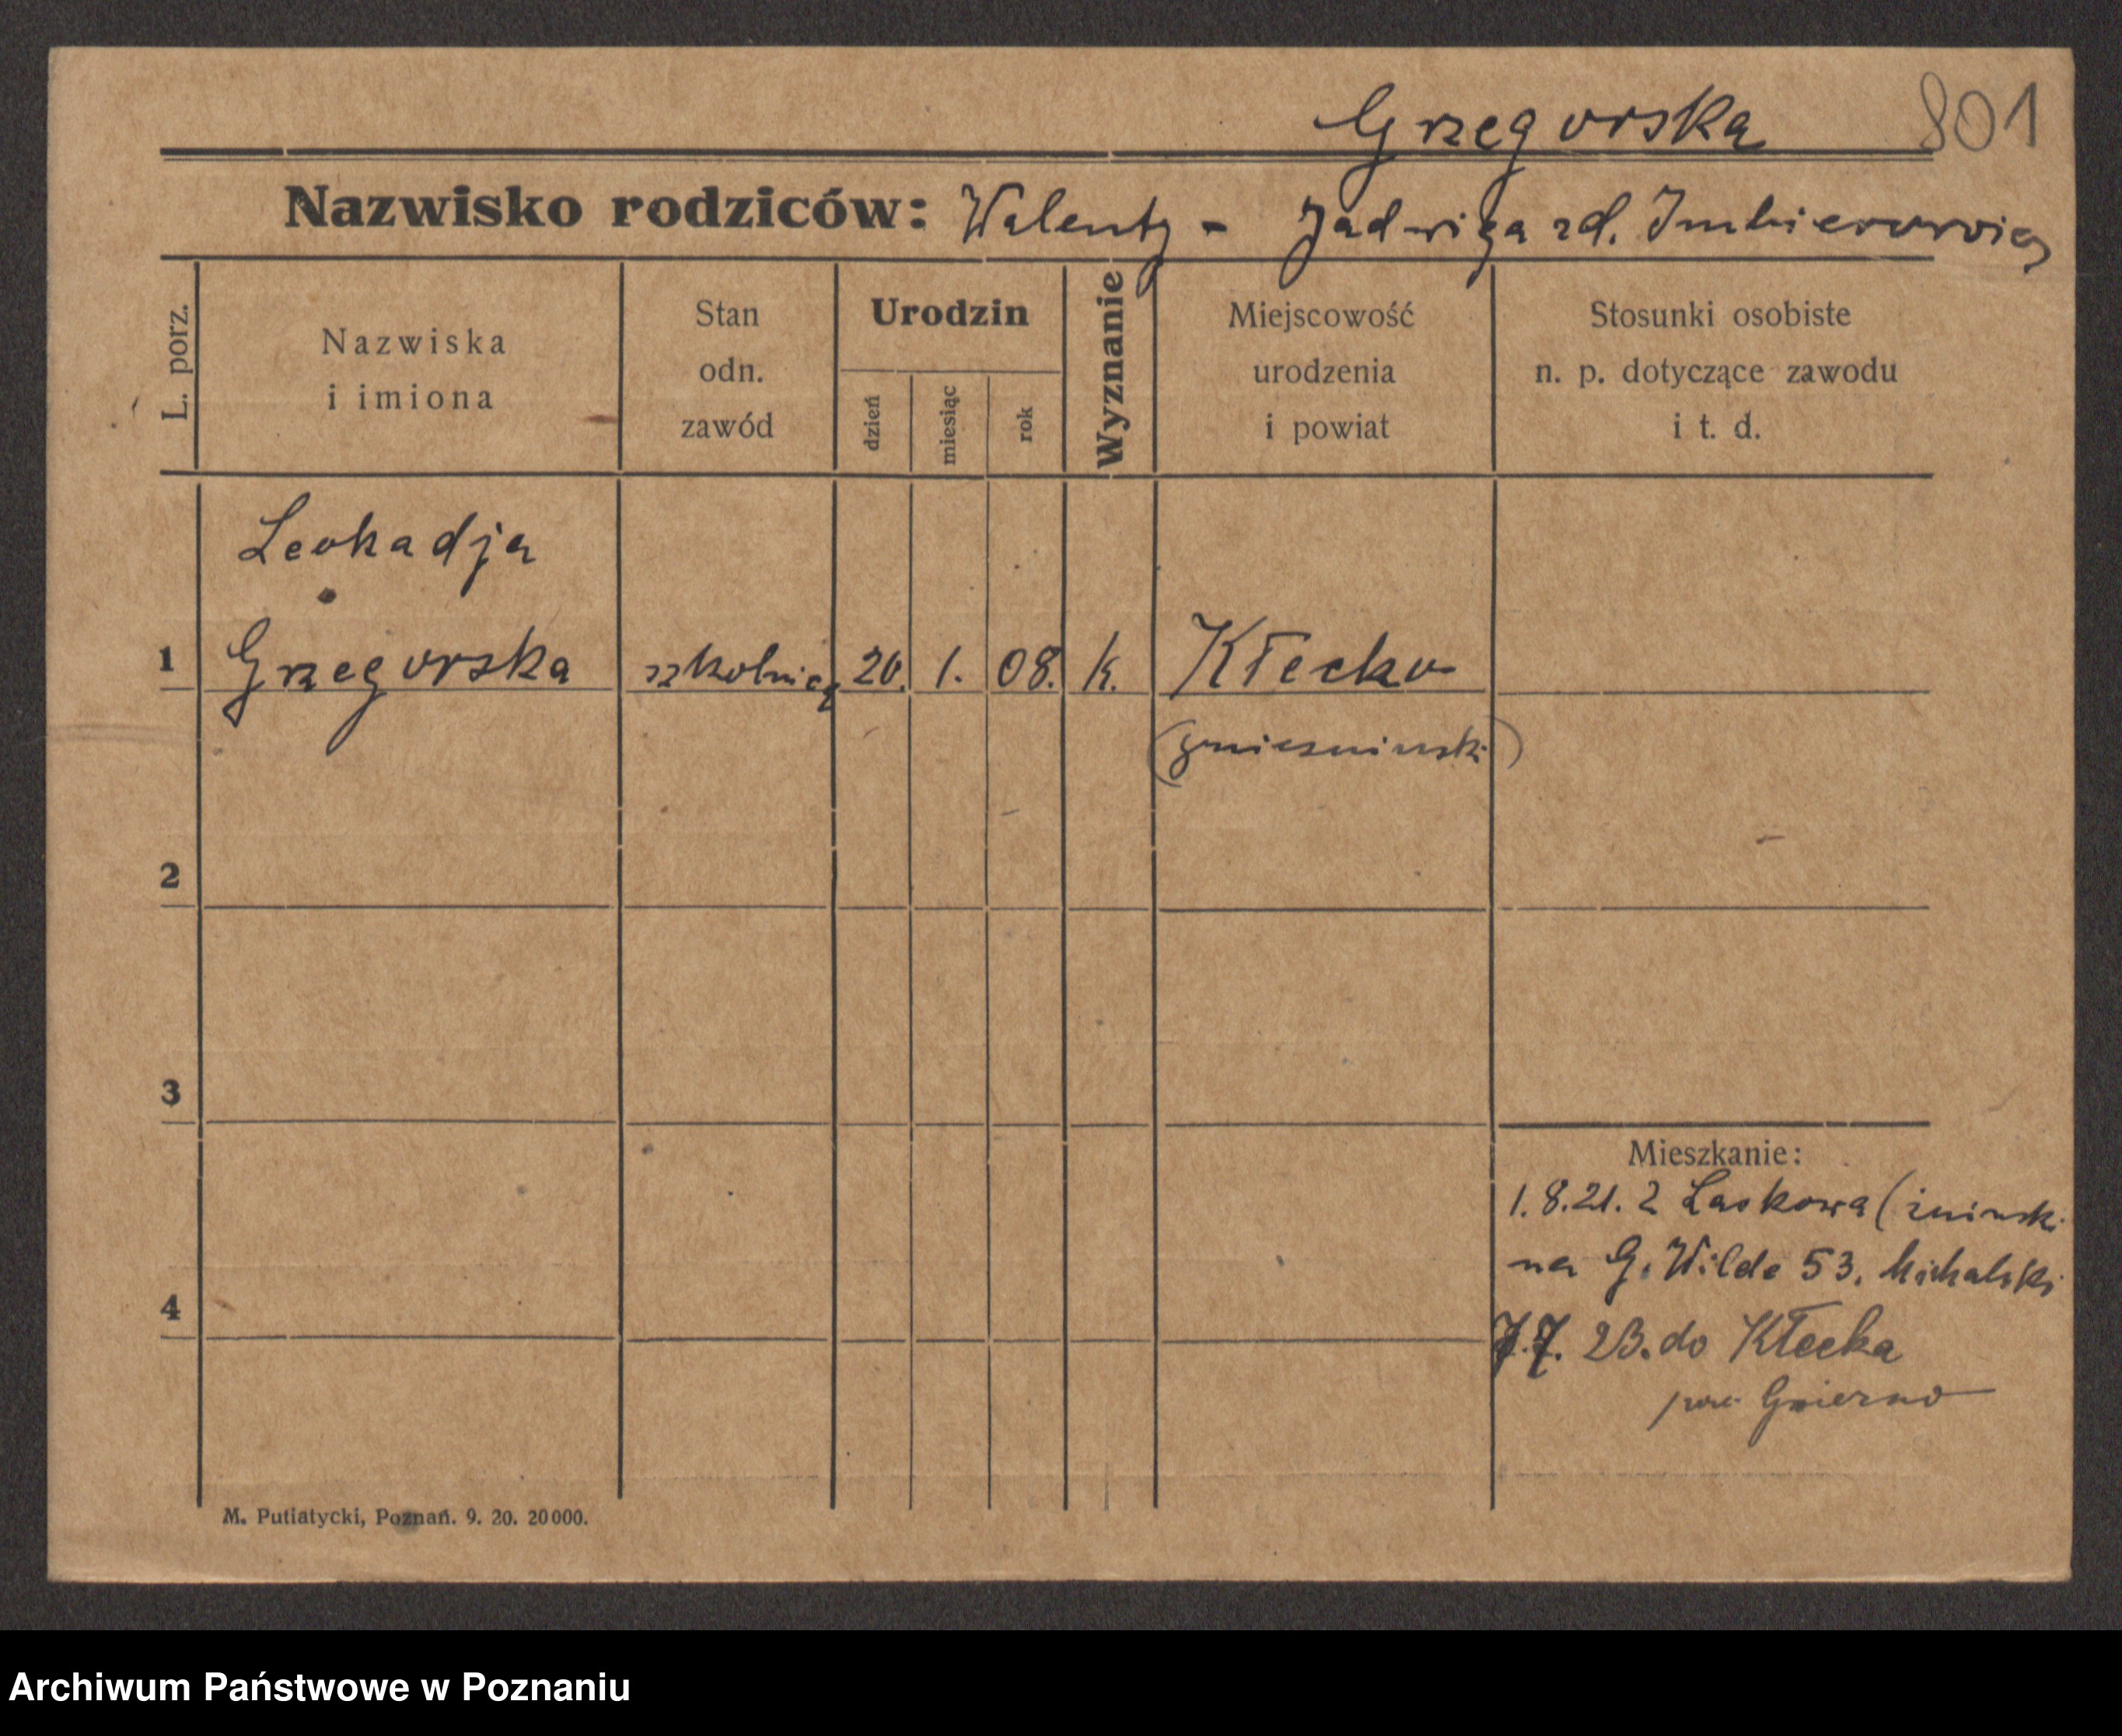 Grzegorska 801
Nazwisko rodziców: Walenty - Jadwiga zd. Imbierowicz
L. porz.
Nazwiska
i imiona
Stan
odn.
zawód
Urodzin
dzień
miesiąc
rok
Wyznanie
Miejscowość
urodzenia
i powiat
Stosunki osobiste
n. p. dotyczące zawodu
i t. d.
Leokadja
1 Grzegorska 20. 1. 08. k. Kłecko
(gnieźnieński)
2
3
4
Mieszkanie:
1. 8. 21. z Laskowa (żniński
na G. Wilda 53. Michalski
7.7. 23. do Kłecka
pow. Gniezno
M. Putiatycki, Poznań. 9. 20. 20 000.
Archiwum Państwowe w Poznaniu